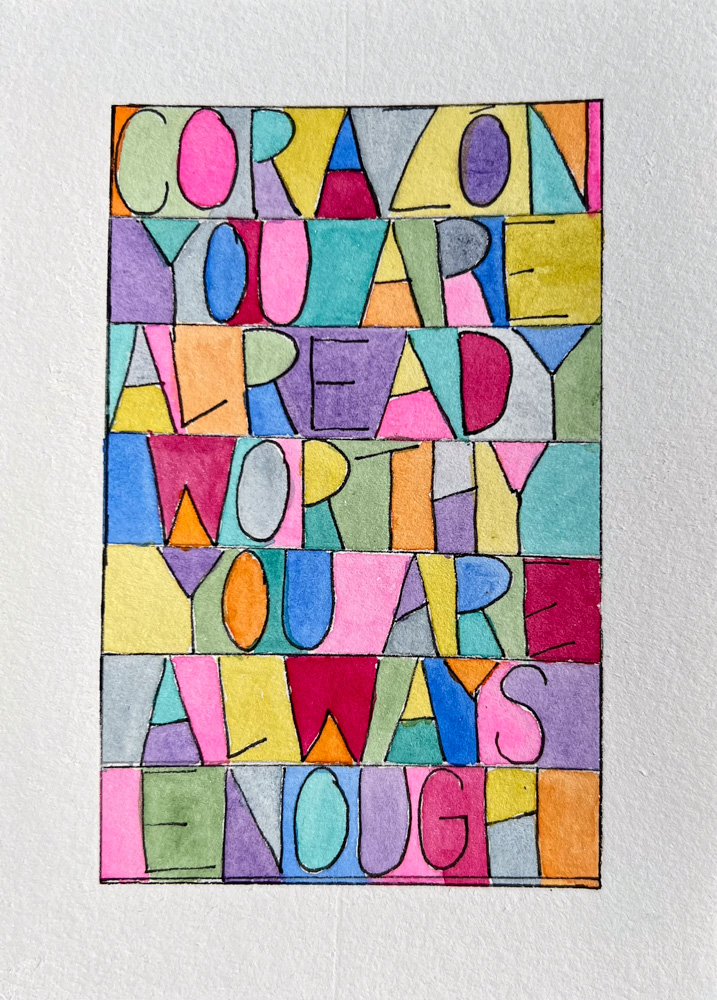 CORAZÓN
YOU ARE
ALREADY
WORTHY
YOU ARE
ALWAYS
ENOUGH